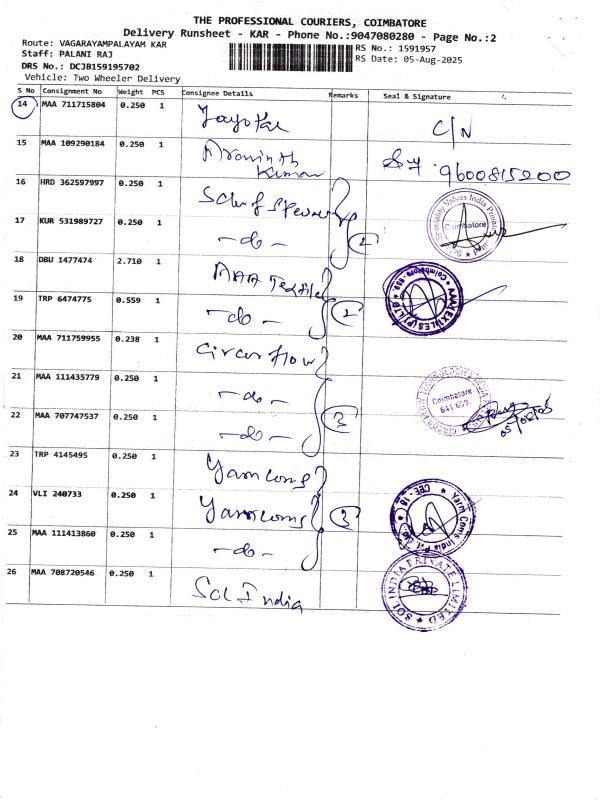 THE PROFESSIONAL COURIERS, COIMBATORE
Delivery Runsheet - KAR - Phone No.:9047080280 - Page No.:2
Route: VAGARAYAMPALAYAM KAR
RS No.: 1591957
Staff: PALANI RAJ
RS Date: 05-Aug-2025
DRS No.: DCJB159195702
Vehicle: Two Wheeler Delivery
S No Consignment No Weight PCS Consignee Details Remarks Seal & Signature
14 MAA 711715804 0.250 1 C/N
15 MAA 109290184 0.250 1 Aravinth Kumar 9600815200
16 HRD 362597997 0.250 1
17 KUR 531989727 0.250 1 - do - 2
Coimbatore
18 DBU 1477474 2.710 1 MAA Textile
19 TRP 6474775 0.559 1 - do - 2
20 MAA 711759955 0.238 1 Circor flow
21 MAA 111435779 0.250 1 - do -
Coimbatore
641 659.
22 MAA 707747537 0.250 1 - do - 3
05/08/25
23 TRP 4145495 0.250 1 Yarncoms
24 VLI 240733 0.250 1 Yarncoms 3
Yarn Coms India Pvt. CBE-18
25 MAA 111413860 0.250 1 - do -
26 MAA 708720546 0.250 1 Sol India
SOL INDIA PRIVATE LIMITED